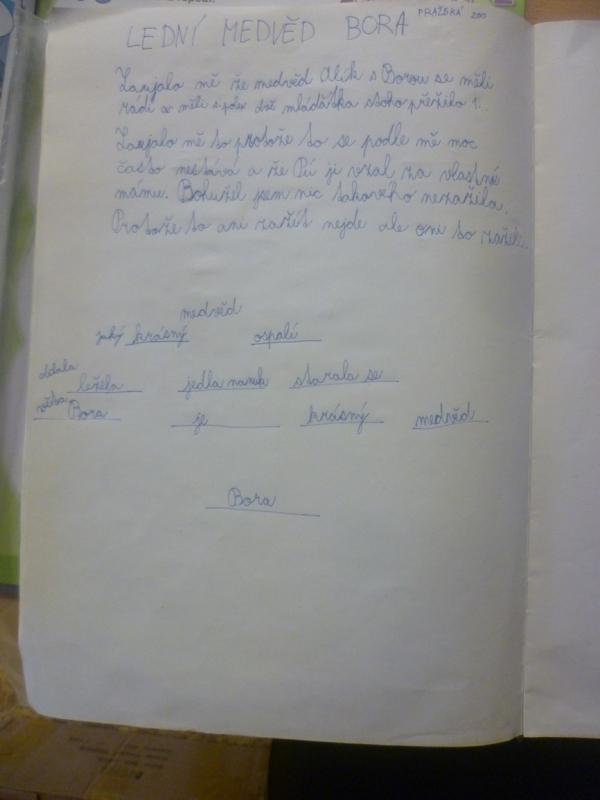 LEDNÍ MEDVĚD BORA
PRAŽSKÁ ZOO
Zaujalo mě že medvěd Alík s Borou se měli
rádi a měli spolu dvě mláďátka stoho přežilo 1.
Zaujalo mě to protože to se podle mě moc
často nestává a že Pú ji vzal za vlastní
mámu. Bohužel jsem nic takového nezažila.
Protože to ani zažít nejde ale oni to zažili.
medvěd
jaký krásný ospalí
dělala ležela jedla nanuk starala se
věta Bora je krásný medvěd
Bora